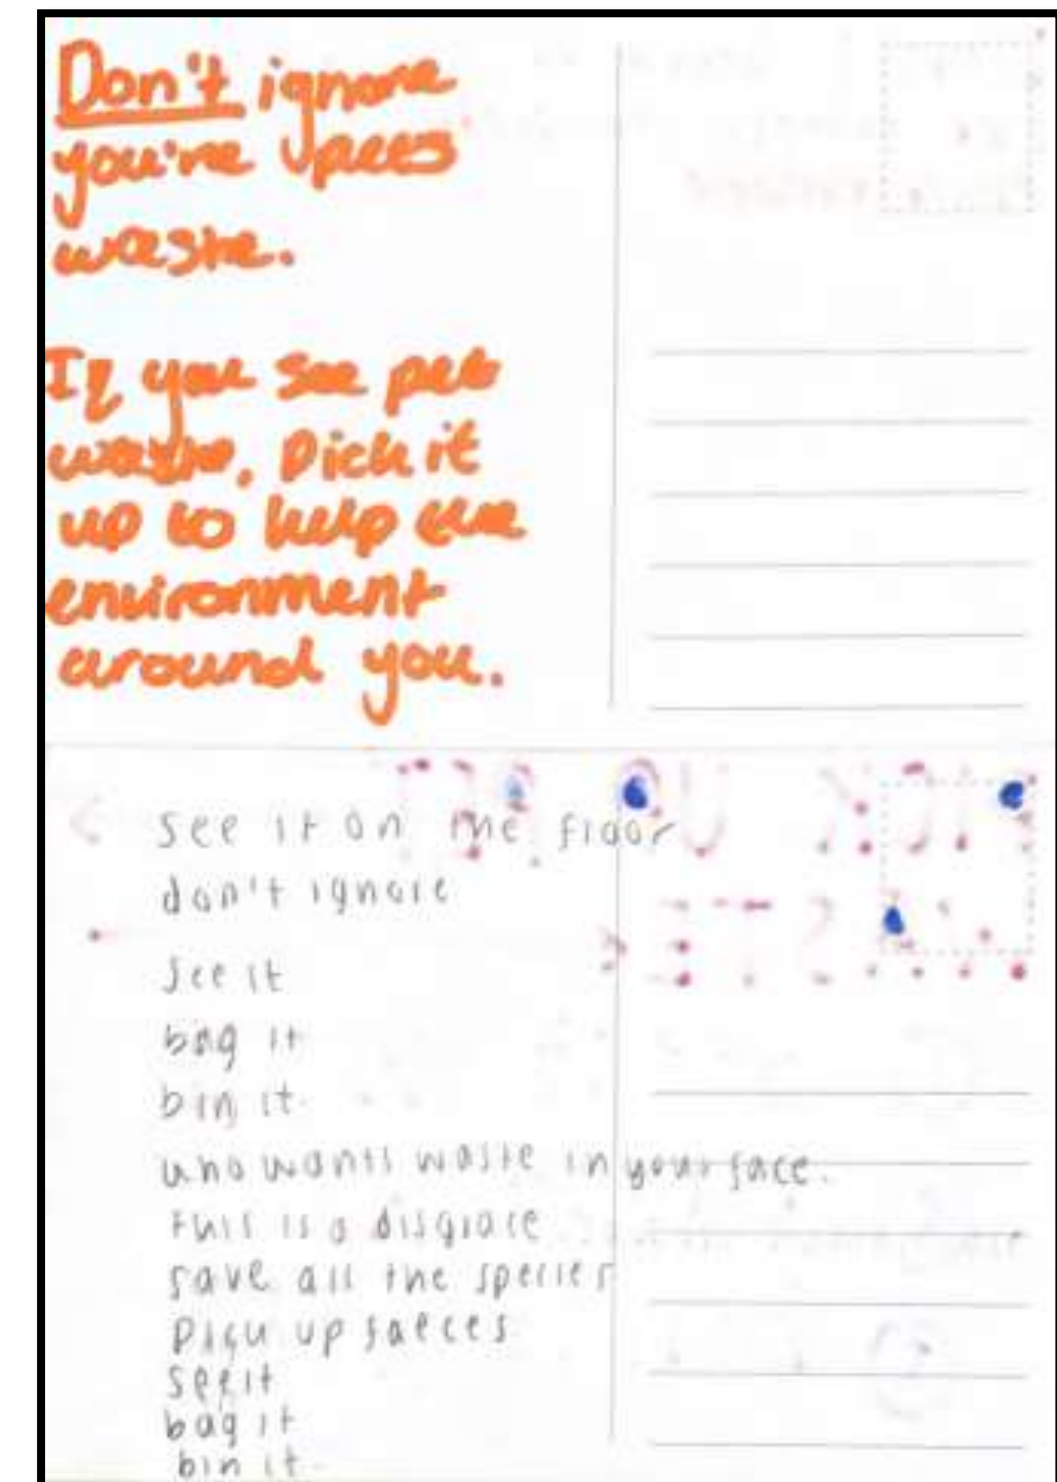 Don't ignore
you're
waste.
If you see pet
waste, Pick it
up to help the
environment
around you.
See it on the floor
don't ignore
See it
bag it
bin it.
who wants waste in your face.
This is a disgrace
save all the species
Pick up faeces
see it
bag it
bin it.